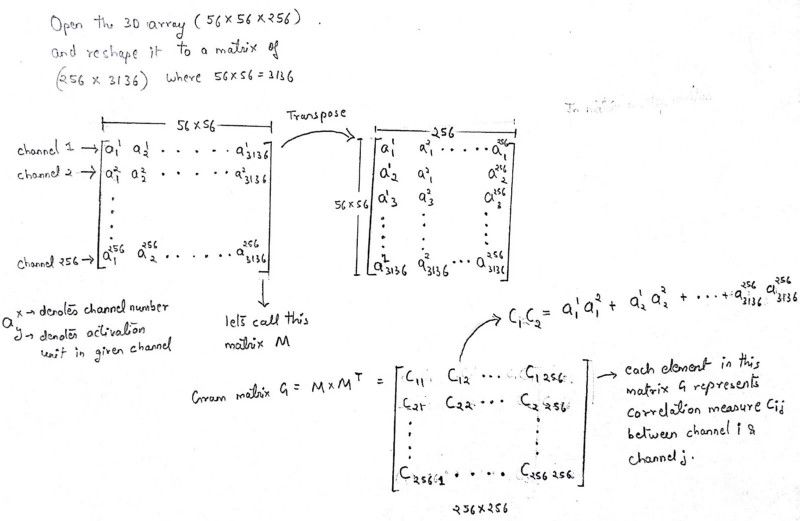 Open the 3D array (56×56×256)
and reshape it to a matrix of
(256 × 3136) where 56×56 = 3136
56×56
Transpose
256
channel 1 → a¹₁ a¹₂ · · · · · a¹₃₁₃₆
channel 2 → a²₁ a²₂ · · · · · a²₃₁₃₆
channel 256 → a²⁵⁶₁ a²⁵⁶₂ · · · · · a²⁵⁶₃₁₃₆
56×56
a¹₁ a²₁ · · · · · a²⁵⁶₁
a¹₂ a²₁ a²⁵⁶₂
a¹₃ a²₃ a²⁵⁶₃
a¹₃₁₃₆ a²₃₁₃₆ · · · a²⁵⁶₃₁₃₆
a x → denotes channel number
y → denotes activation
unit in given channel
lets call this
matrix M
→ C₁C₂ = a¹₁a²₁ + a¹₂a²₂ + · · · + a²⁵⁶₃₁₃₆ a²⁵⁶₃₁₃₆
Gram matrix G = M × Mᵀ =
C₁₁ C₁₂ · · · C₁ ₂₅₆
C₂₁ C₂₂ · · · C₂ ₂₅₆
C₂₅₆ ₁ · · · · C₂₅₆ ₂₅₆
256×256
→ each element in this
matrix G represents
correlation measure Cij
between channel i &
channel j.